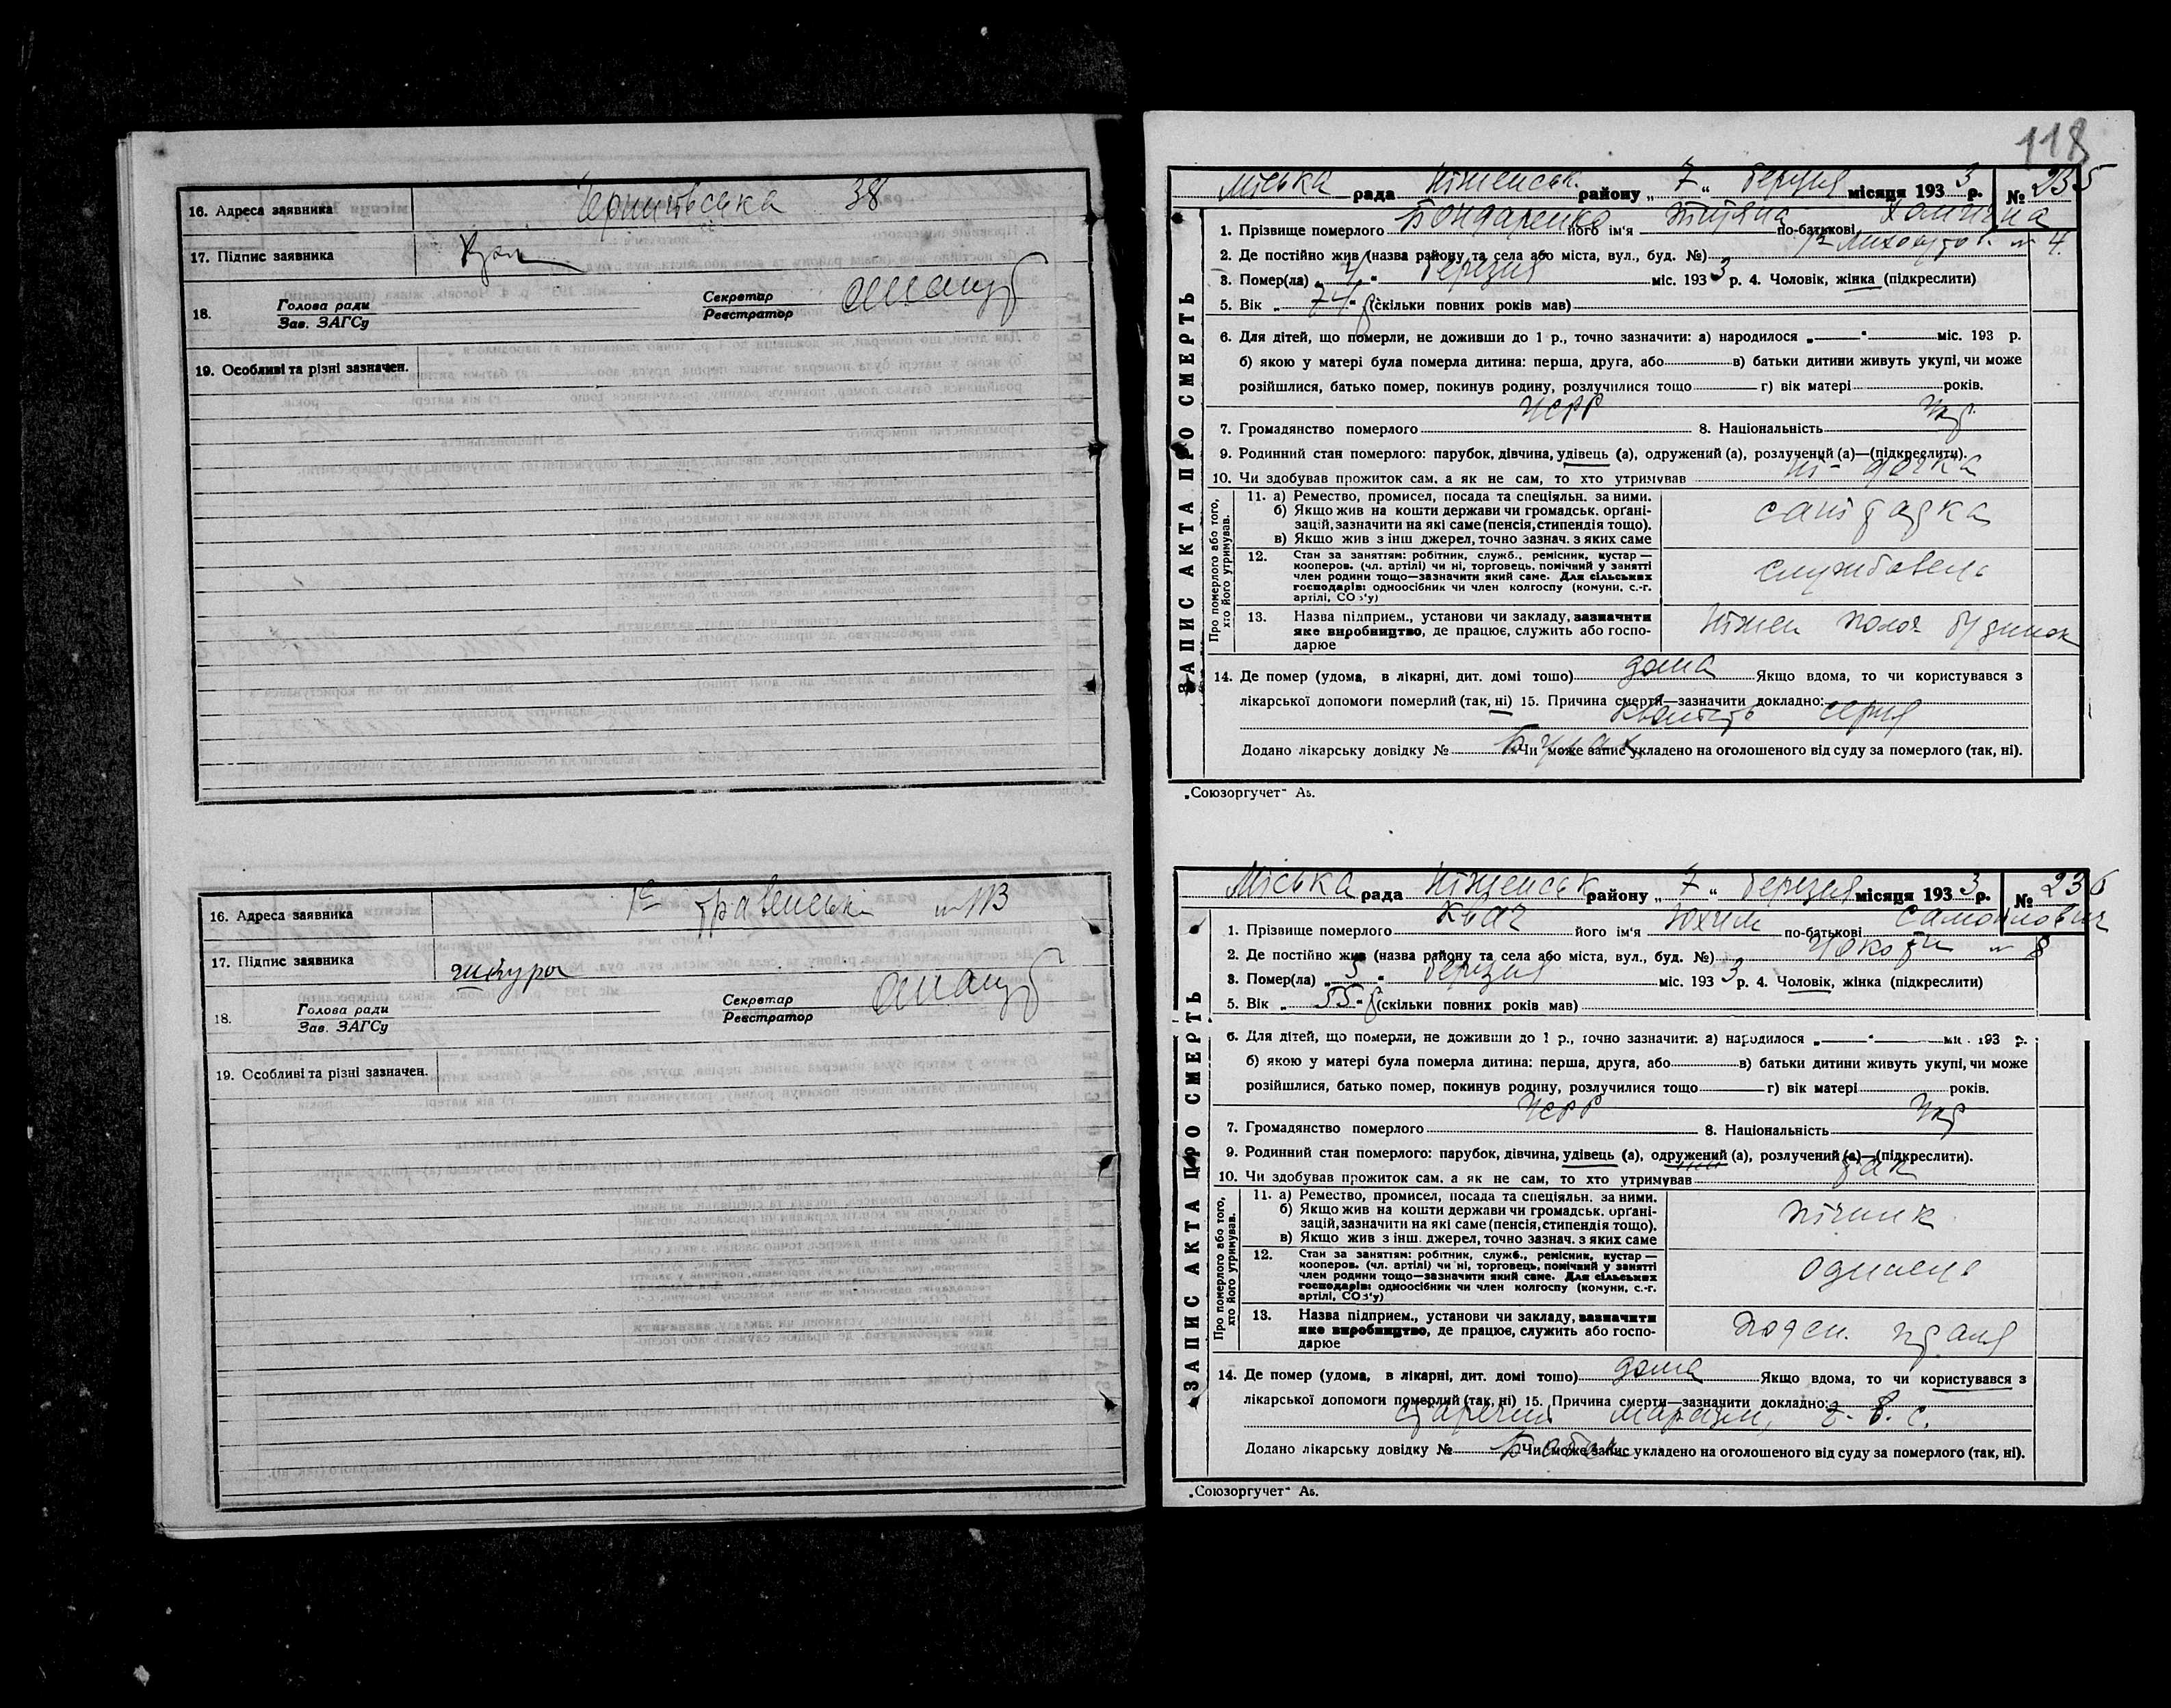 16. Адреса заявника Чернигівська 38
17. Підпис заявника
18. Голова ради
Зав. ЗАГСу
Секретар
Реєстратор
19. Особливі та різні зазначен.
16. Адреса заявника 1го травенська № 113
17. Підпис заявника
18. Голова ради
Зав. ЗАГСу
Секретар
Реєстратор
19. Особливі та різні зазначен.
118
Міська рада Ніженськ. району „ 7 " березня місяця 1933 р. № 235
ЗАПИС АКТА ПРО СМЕРТЬ
1. Прізвище померлого Бондаренко його ім'я Тетяна по-батькові
2. Де постійно жив (назва району та села або міста, вул., буд. №) № 4.
3. Помер(ла) „ 4 " березня міс. 1933 р. 4. Чоловік, жінка (підкреслити)
5. Вік „ 74 " р (скільки повних років мав)
6. Для дітей, що померли, не доживши до 1 р., точно зазначити: а) народилося „ " міс. 193 р.
б) якою у матері була померла дитина: перша, друга, або в) батьки дитини живуть укупі, чи може
розійшлися, батько помер, покинув родину, розлучилися тощо г) вік матері років.
7. Громадянство померлого УСРР 8. Національність Укр.
9. Родинний стан померлого: парубок, дівчина, удівець (а), одружений (а), розлучений (а)—(підкреслити).
10. Чи здобував прожиток сам, а як не сам, то хто утримував ні - дочка
Про померлого або того, хто його утримував.
11. а) Ремество, промисел, посада та спеціяльн. за ними.
б) Якщо жив на кошти держави чи громадськ. органі-
зацій, зазначити на які саме (пенсія, стипендія тощо).
в) Якщо жив з інш джерел, точно зазнач. з яких саме
12. Стан за заняттям: робітник, служб., ремісник, кустар —
кооперов. (чл. артілі) чи ні, торговець, помічний у занятті
член родини тощо—зазначити який саме. Для сільських
господарів: одноосібник чи член колгоспу (комуни, с.-г.
артілі, СОЗ'у)
службовець
13. Назва підприєм., установи чи закладу, зазначити
яке виробництво, де працює, служить або госпо-
дарює
Ніжен полог будинок
14. Де помер (удома, в лікарні, дит. домі тошо) дома Якщо вдома, то чи користувався з
лікарської допомоги померлий (так, ні) 15. Причина смерти—зазначити докладно:
серця
Додано лікарську довідку № Чи може запис укладено на оголошеного від суду за померлого (так, ні).
„Союзоргучет" Аз.
Міська рада Ніженськ району „ 7 " березня місяця 1933 р. № 236
ЗАПИС АКТА ПРО СМЕРТЬ
1. Прізвище померлого Квач його ім'я Юхим по-батькові Самойлович
2. Де постійно жив (назва району та села або міста, вул., буд. №) № 8
3. Помер(ла) „ 5 " березня міс. 1933 р. 4. Чоловік, жінка (підкреслити)
5. Вік „ 55 " р (скільки повних років мав)
6. Для дітей, що померли, не доживши до 1 р., точно зазначити: а) народилося „ " міс. 193 р.
б) якою у матері була померла дитина: перша, друга, або в) батьки дитини живуть укупі, чи може
розійшлися, батько помер, покинув родину, розлучилися тощо г) вік матері років.
7. Громадянство померлого УСРР 8. Національність Укр
9. Родинний стан померлого: парубок, дівчина, удівець (а), одружений (а), розлучений (а)—(підкреслити).
10. Чи здобував прожиток сам, а як не сам, то хто утримував так
Про померлого або того, хто його утримував.
11. а) Ремество, промисел, посада та спеціяльн. за ними.
б) Якщо жив на кошти держави чи громадськ. органі-
зацій, зазначити на які саме (пенсія, стипендія тощо).
в) Якщо жив з інш. джерел, точно зазнач. з яких саме
пічник
12. Стан за заняттям: робітник, служб., ремісник, кустар —
кооперов. (чл. артілі) чи ні, торговець, помічний у занятті
член родини тощо—зазначити який саме. Для сільських
господарів: одноосібник чи член колгоспу (комуни, с.-г.
артілі, СОЗ'у)
одинець
13. Назва підприєм., установи чи закладу, зазначити
яке виробництво, де працює, служить або госпо-
дарює
поден. праця
14. Де помер (удома, в лікарні, дит. домі тошо) дома Якщо вдома, то чи користувався з
лікарської допомоги померлий (так, ні) 15. Причина смерти—зазначити докладно:
старечий маразм,
Додано лікарську довідку № Чи може запис укладено на оголошеного від суду за померлого (так, ні).
„Союзоргучет" Аз.